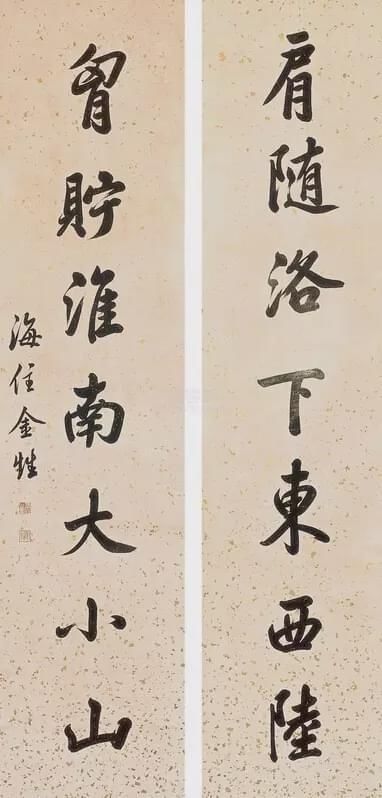 肩随洛下東西陸
胷貯淮南大小山
海住金甡